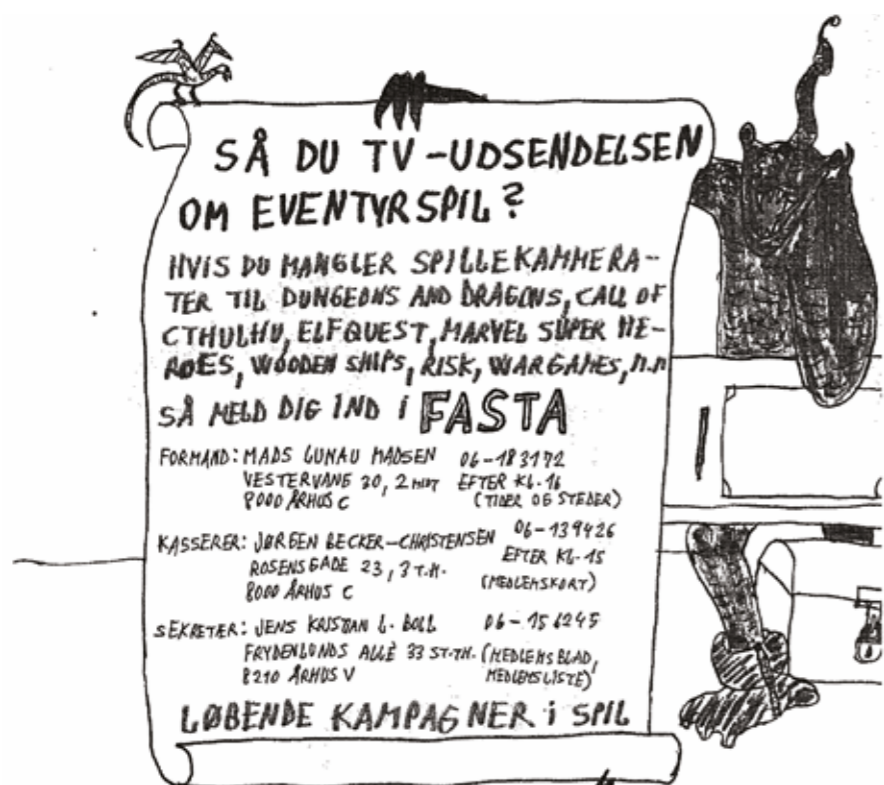 SÅ DU TV-UDSENDELSEN
OM EVENTYRSPIL?
HVIS DU MANGLER SPILLEKAMMERA-
TER TIL DUNGEONS AND DRAGONS, CALL OF
CTHULHU, ELFQUEST, MARVEL SUPER HE-
ROES, WOODEN SHIPS, RISK, WARGAMES, M.M
SÅ MELD DIG IND I FASTA
FORMAND: MADS LUNAU MADSEN 06-183172
VESTERVANG 30, 2 MIDT EFTER KL. 16
8000 ÅRHUS C (TIDER OG STEDER)
KASSERER: JØRGEN BECKER-CHRISTENSEN 06-139426
ROSENSGADE 23, 3 T.H. EFTER KL. 15
8000 ÅRHUS C (MEDLEMSKORT)
SEKRETÆR: JENS KRISTIAN L. BOLL 06-156245
FRYDENLUNDS ALLÈ 33 ST.TH. (MEDLEMSBLAD,
8210 ÅRHUS V MEDLEMSLISTE)
LØBENDE KAMPAGNER I SPIL